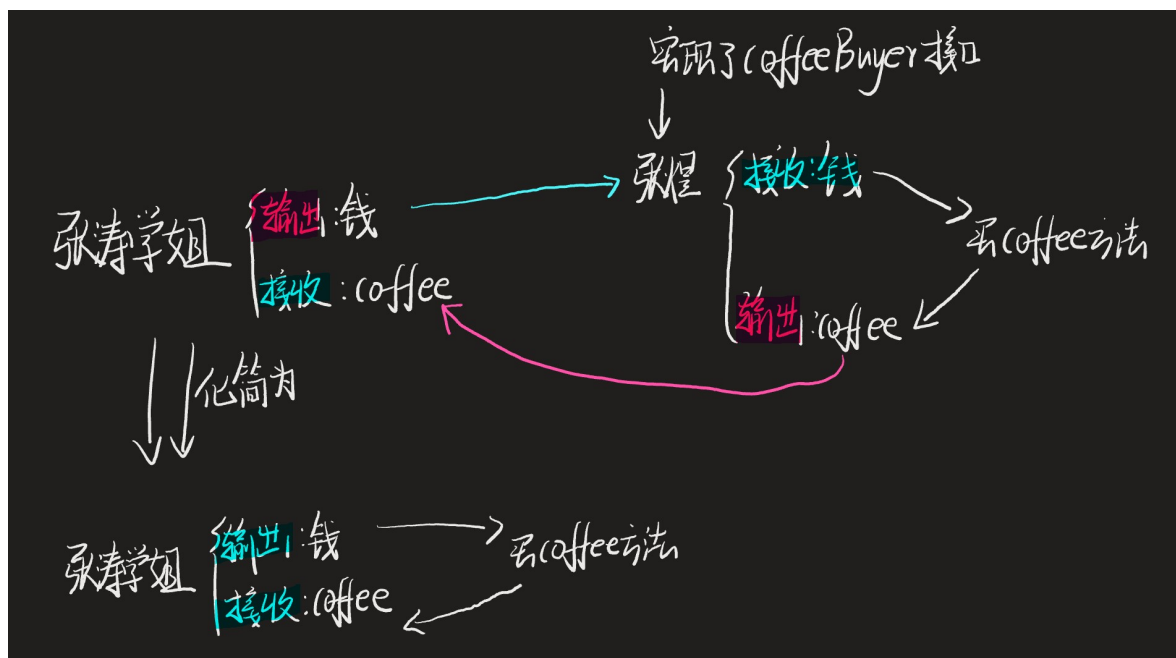 实现了CoffeeBuyer接口
张煜
接收:钱
买coffee方法
输出:coffee
张涛学姐
输出:钱
接收:coffee
化简为
张涛学姐
输出:钱
接收:coffee
买coffee方法